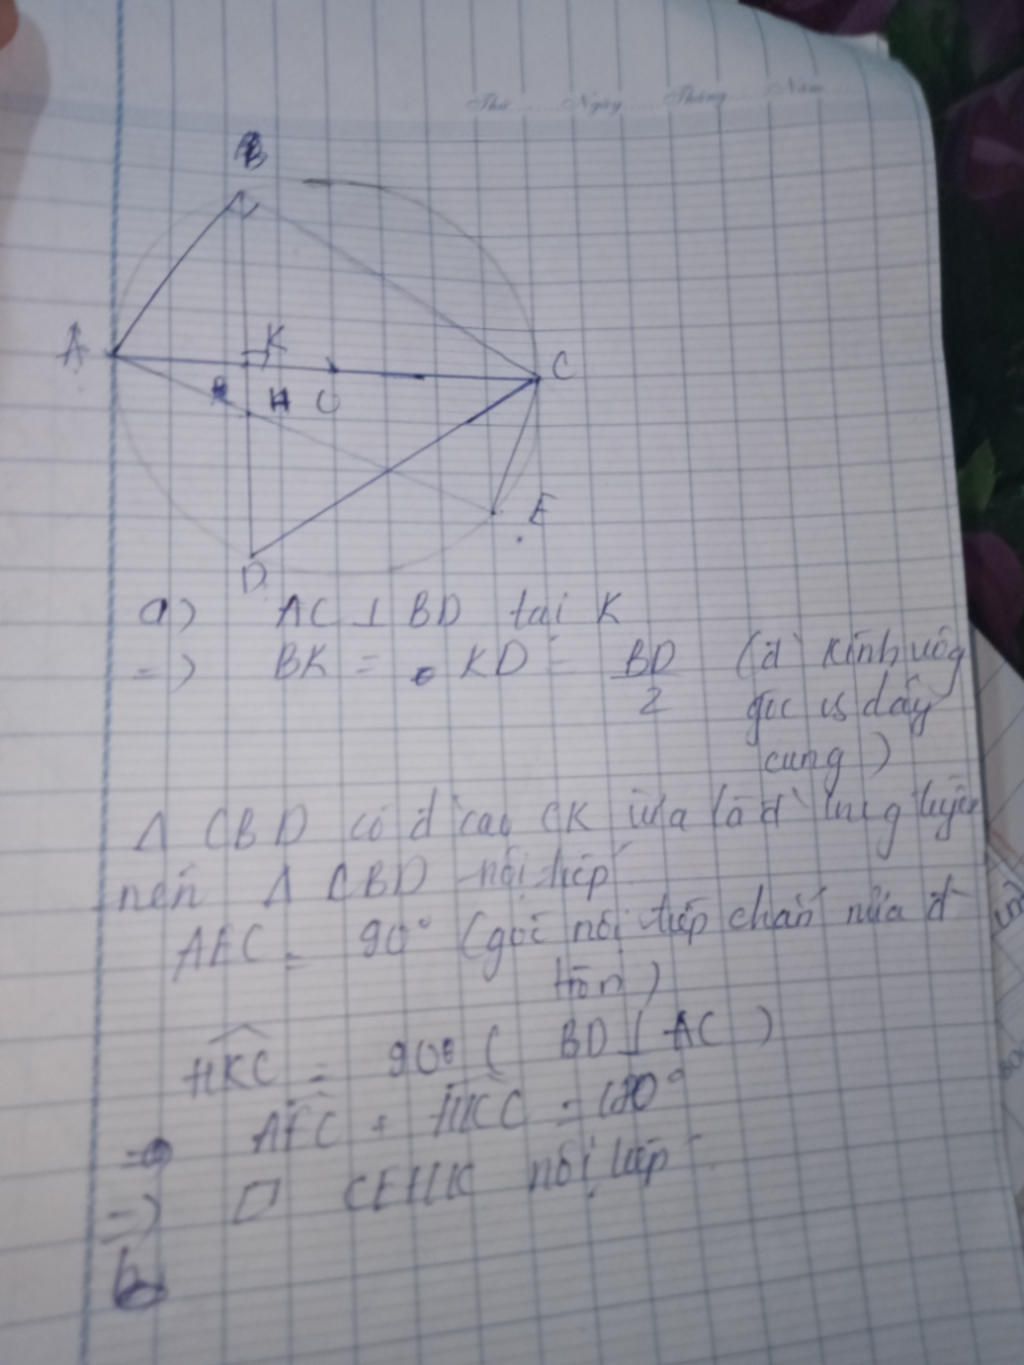 Thứ Ngày Tháng Năm
B
A K C
H O
E
D
a) AC ⊥ BD tại K
=) BK = KD = BD/2 (đ' kính vuông
góc vs dây
cung)
Δ CBD có đ' cao CK vừa là đ' trung tuyến
nên Δ CBD nội tiếp
AEC = 90° (góc nội tiếp chắn nửa đ'
tròn)
HKC = 90° ( BD ⊥ AC )
AEC + HKC = 180°
=) □ CEHK nội tiếp
b